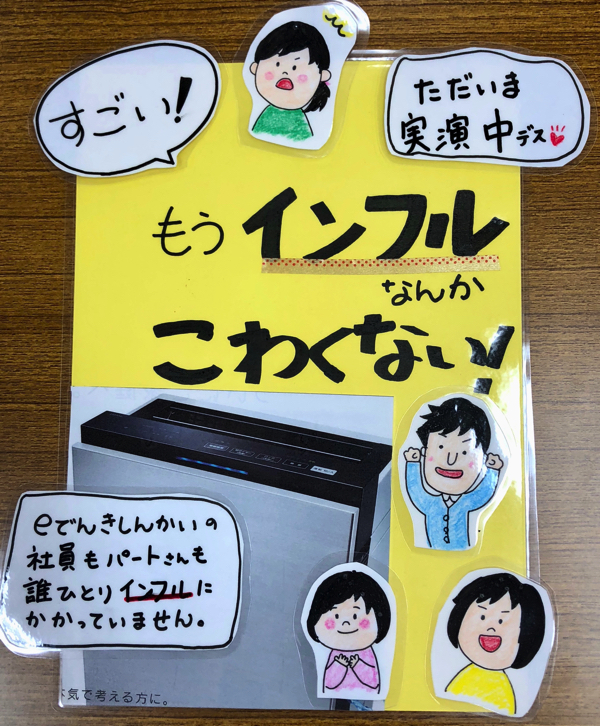 すごい!
ただいま
実演中デス
もうインフル
なんか
こわくない!
eでんきしんかいの
社員もパートさんも
誰ひとりインフルに
かかっていません。
気で考える方に。